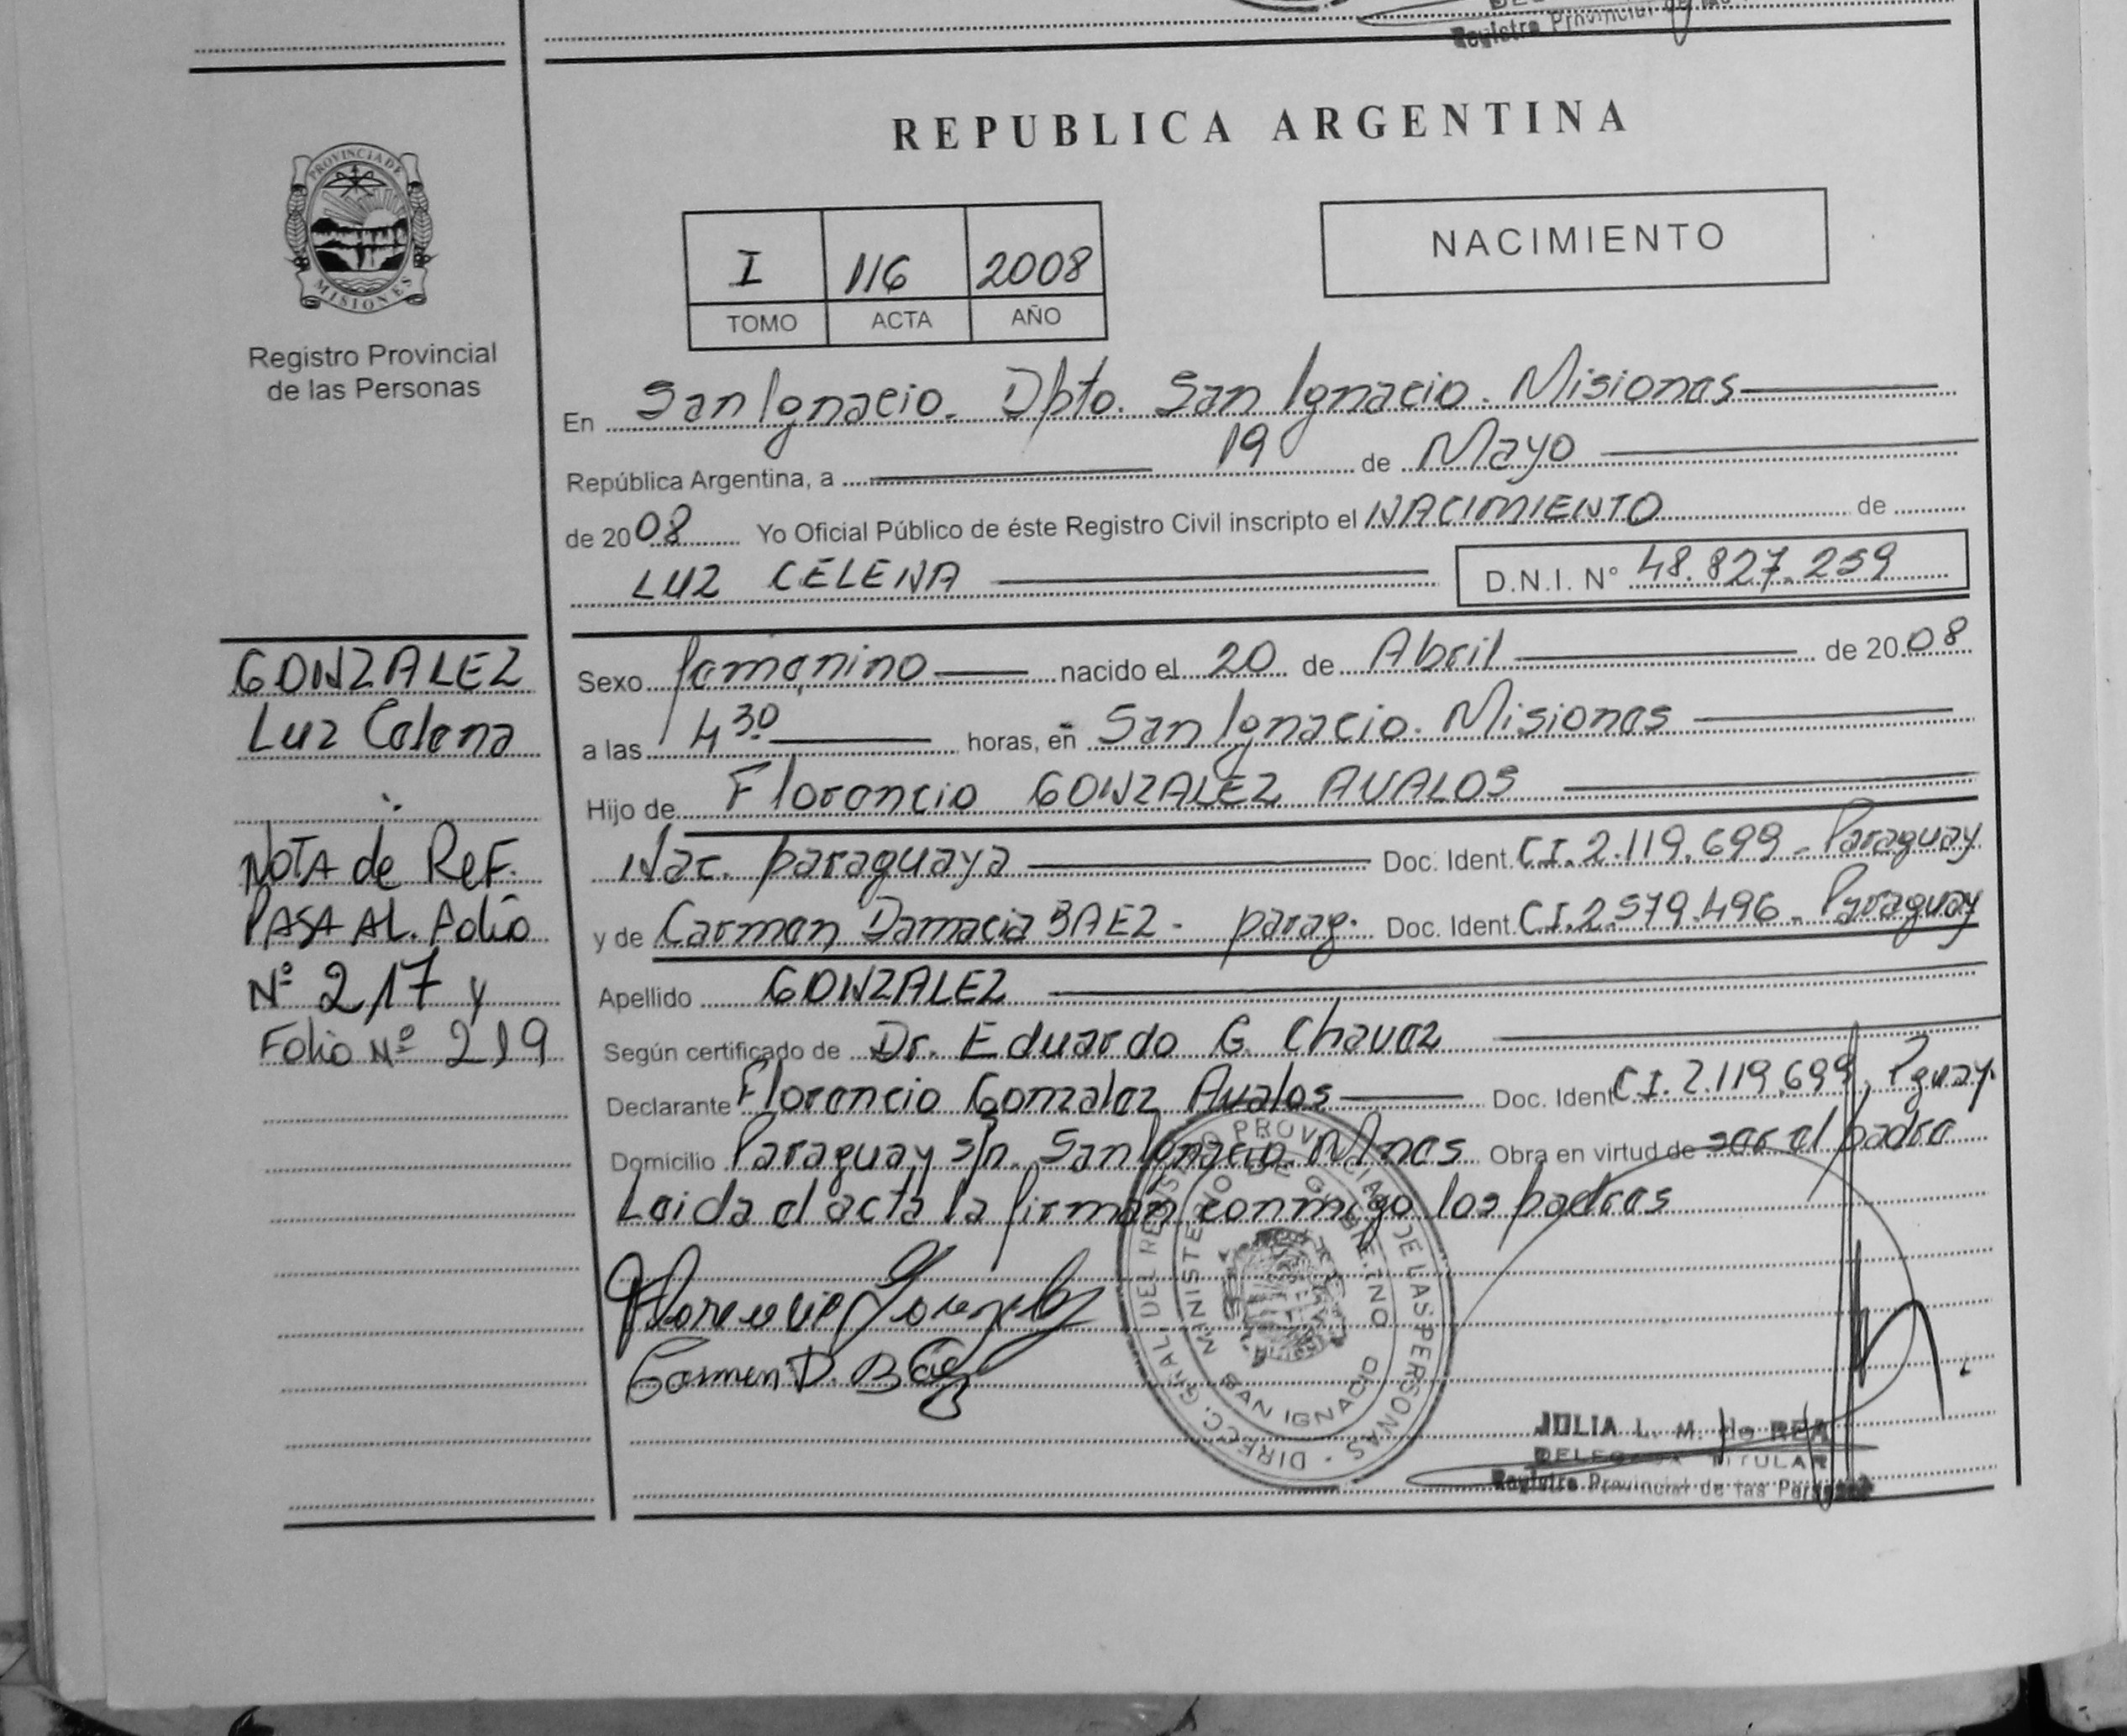 Registro Provincial de las
REPUBLICA ARGENTINA
PROVINCIA DE
MISIONES
Registro Provincial
de las Personas
I 116 2008
TOMO ACTA AÑO
NACIMIENTO
En San Ignacio. Dpto. San Ignacio. Misiones
República Argentina, a 19 de Mayo
de 2008 Yo Oficial Público de éste Registro Civil inscripto el NACIMIENTO de
LUZ CELENA D.N.I. N° 48.827.259
GONZALEZ
Luz Celena
NOTA de REF.
PASA AL. Folio
Nº 217 y
Folio Nº 219
Sexo femenino nacido el 20 de Abril de 2008
a las 4 30 horas, en San Ignacio. Misiones
Hijo de Florencio GONZALEZ AVALOS
Nac. paraguaya Doc. Ident. C.I. 2.119.699 - Paraguay
y de Carmen Damacia BAEZ - parag. Doc. Ident. C.I. 2.579.496 - Paraguay
Apellido GONZALEZ
Según certificado de Dr. Eduardo G. Chavez
Declarante Florencio Gonzalez Avalos Doc. Ident C.I. 2.119.699, Pguay.
Domicilio Paraguay s/n. San Ignacio Mnes Obra en virtud de ser el padre
Leida el acta la firman conmigo los padres
Florencio Gonzalez
Carmen D. Baez
DIRECC. GRAL. DEL REGISTRO PROVINCIAL DE LAS PERSONAS
MINISTERIO DE GOBIERNO
SAN IGNACIO
JULIA L. M. de REA
DELEGADA TITULAR
Registro Provincial de las Personas